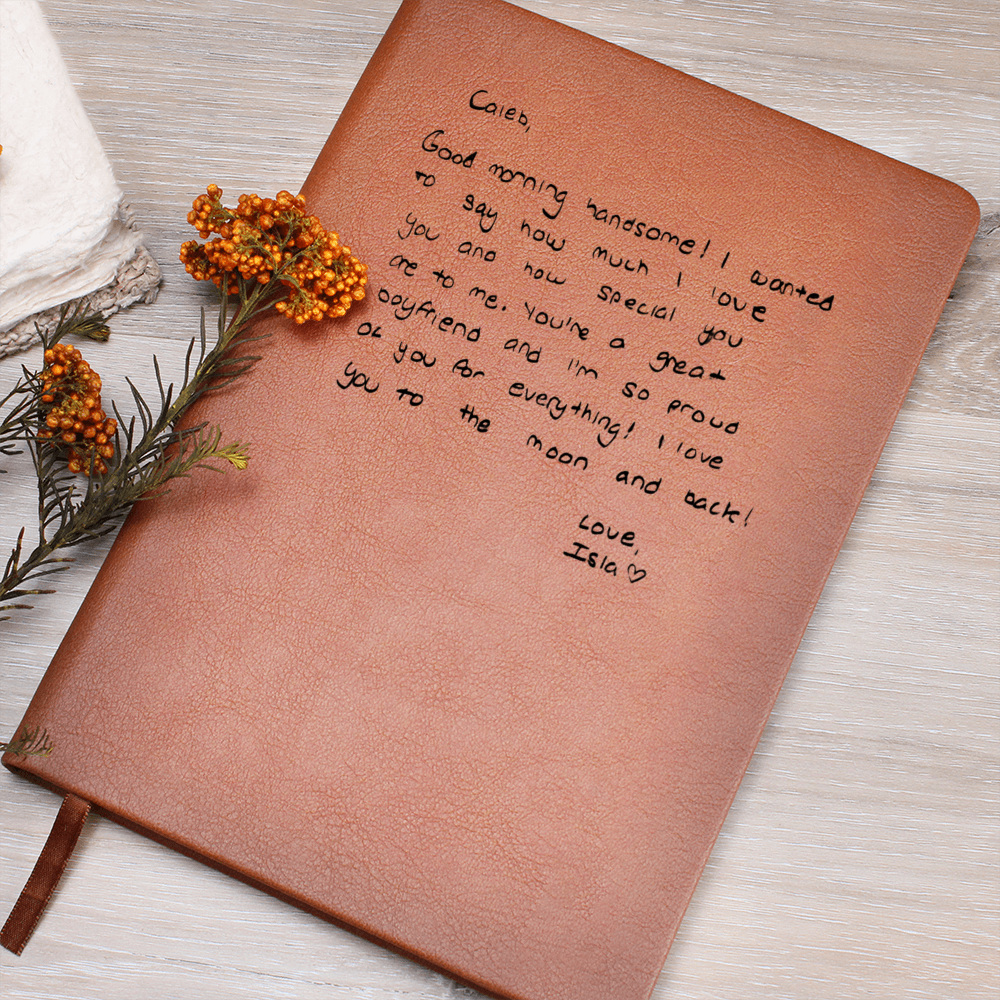 Caleb,
Good morning handsome! I wanted
to say how much I love
you and how special you
are to me. You're a great
boyfriend and I'm so proud
of you for everything! I love
you to the moon and back!
Love,
Isla ♡